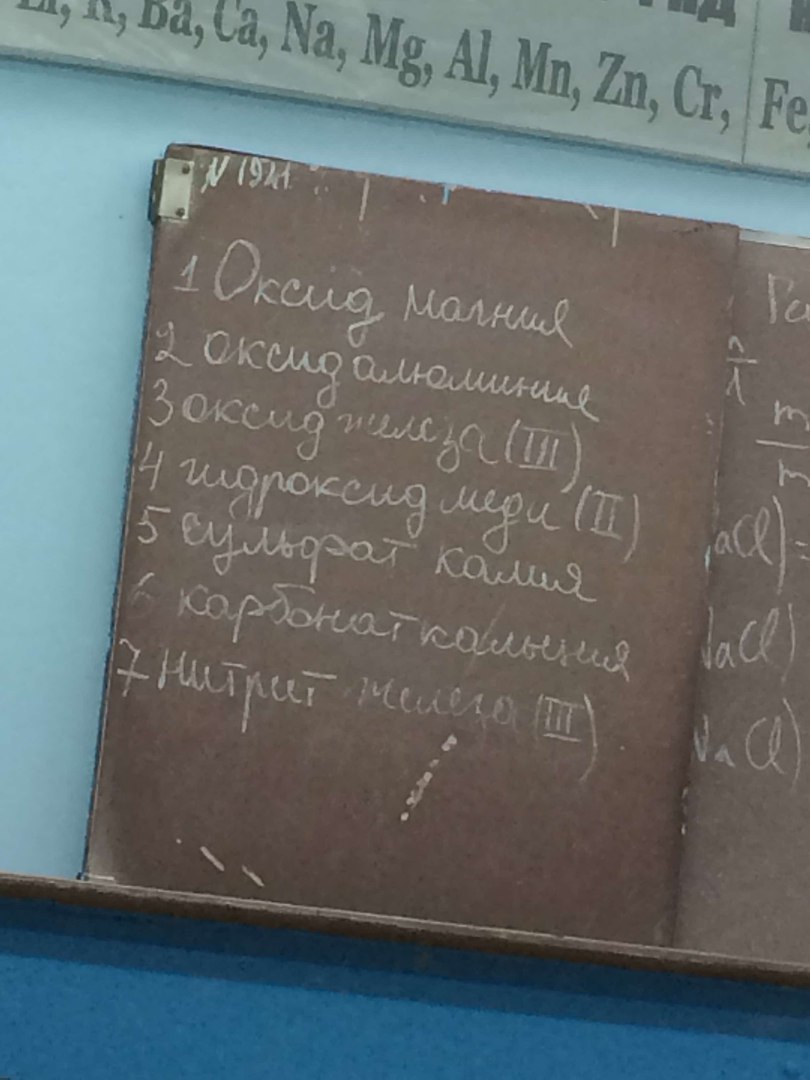 Li, K, Ba, Ca, Na, Mg, Al, Mn, Zn, Cr,
Fe,
N 1921
1 Оксид магния
2 оксид алюминия
3 оксид железа (III)
4 гидроксид меди (II)
5 сульфат калия
6 карбонат кальция
7 Нитрит железа (III)
aCl) =
NaCl)
NaCl)